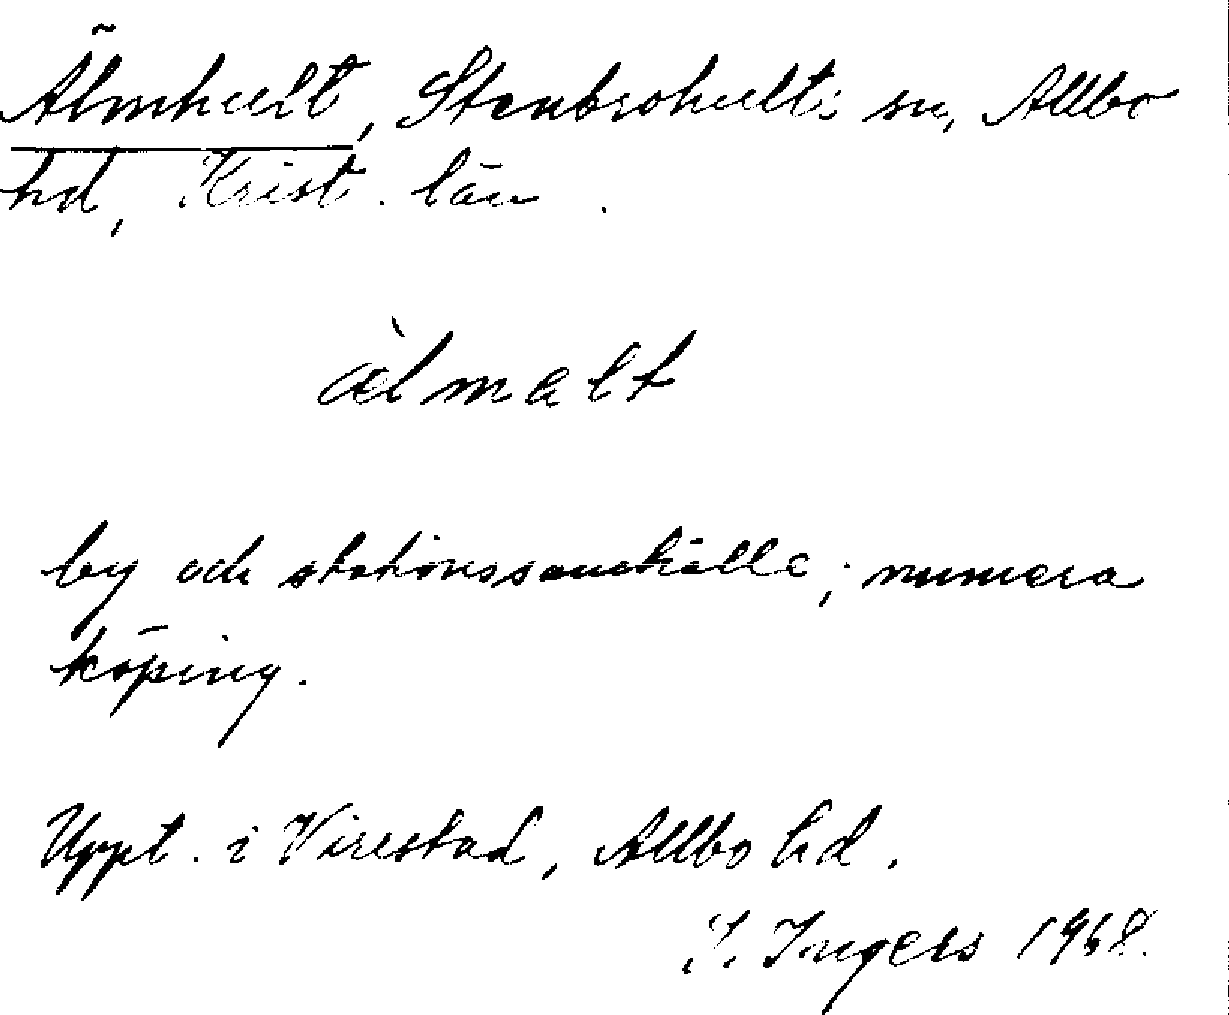 Älmhult, Stenbrohults sn, Allbo
hd, Krist. län.
ælmalt
by och stationssamhälle; numera
köping.
Uppt. i Virestad, Allbo hd.
I. Ingers 1968.